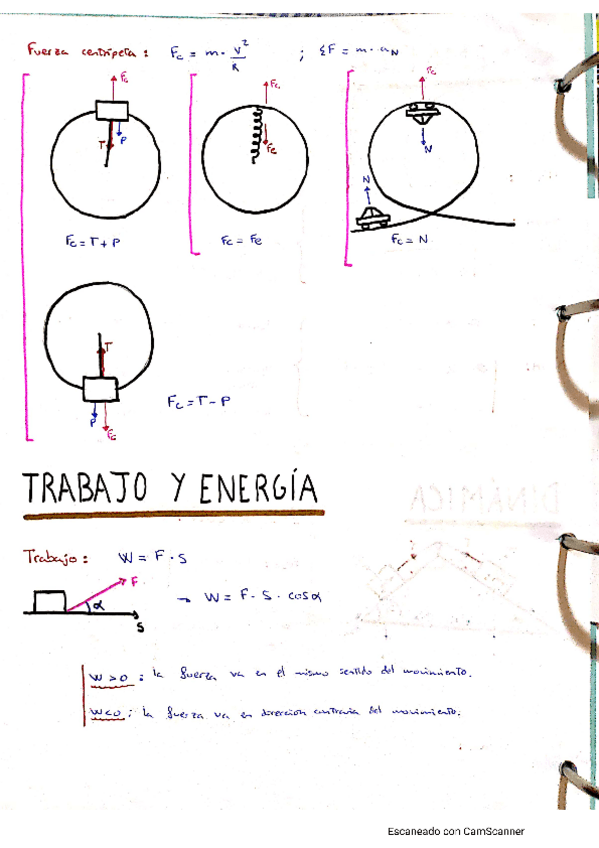 Fuerza centrípeta: Fc = m · v²/R ; ΣF = m · aN
Fc
T
P
Fc = T + P
Fc
Fe
Fc = Fe
Fc
N
N
Fc = N
T
P
Fc
Fc = T - P
TRABAJO Y ENERGÍA
Trabajo: W = F · S
F
α
S
→ W = F · S · cosα
W > 0 : la fuerza va en el mismo sentido del movimiento.
W < 0 : la fuerza va en dirección contraria del movimiento.
DINÁMICA
Escaneado con CamScanner